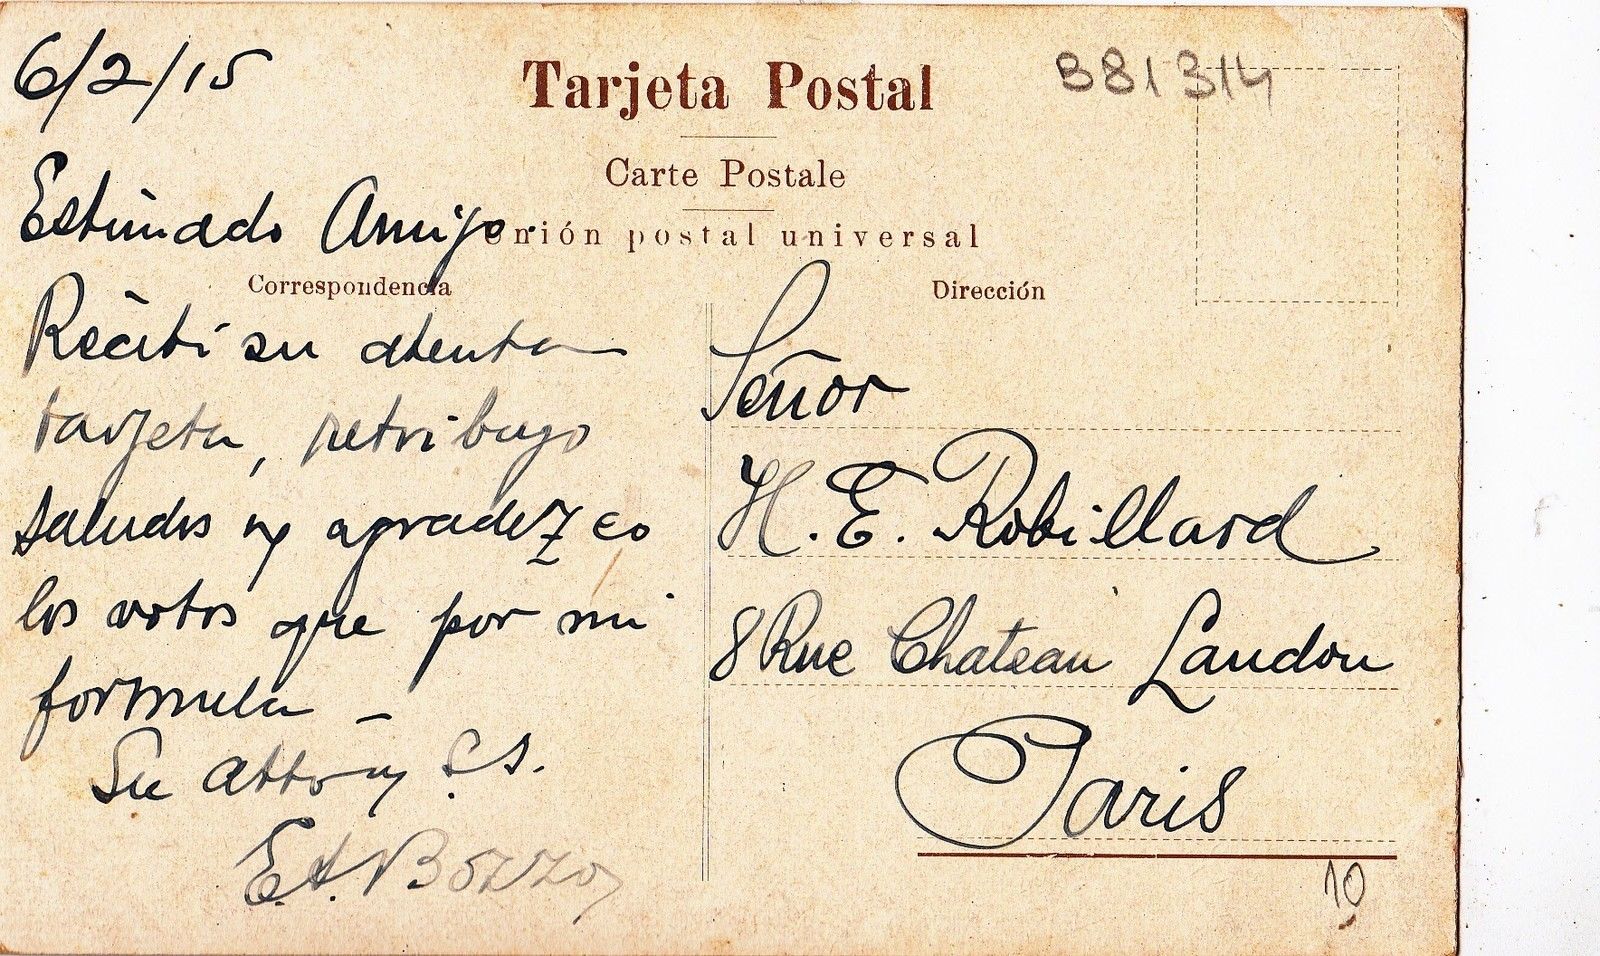 6/2/15
Tarjeta Postal
B81314
Carte Postale
Unión postal universal
Correspondencia
Dirección
Estimado Amigo.
Recibí su atenta
tarjeta, retribuyo
saludos y agradezco
los votos que por mi
formula —
Su atto y S.S.
E. A. Bozzo
Señor
H. E. Robillard
8 Rue Chateau Landon
Paris
10